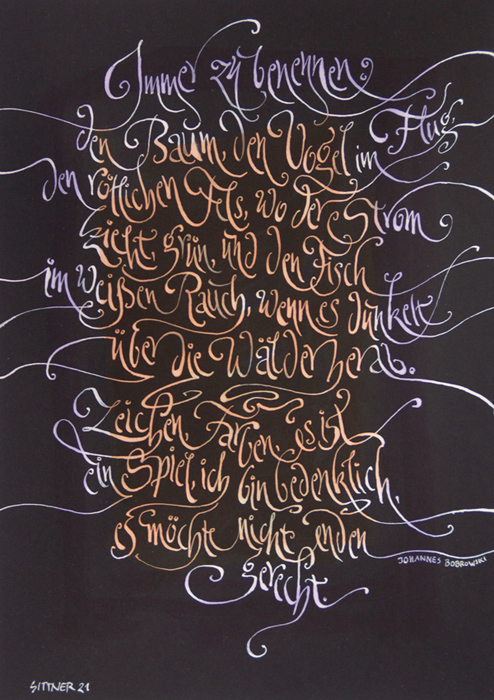 Immer zu benennen:
den Baum, den Vogel im Flug,
den rötlichen Fels, wo der Strom
zieht, grün, und den Fisch
im weißen Rauch, wenn es dunkelt
über die Wälder herab.
Zeichen, Farben, es ist
ein Spiel, ich bin bedenklich,
es möchte nicht enden
gerecht.
JOHANNES BOBROWSKI
SITTNER 21